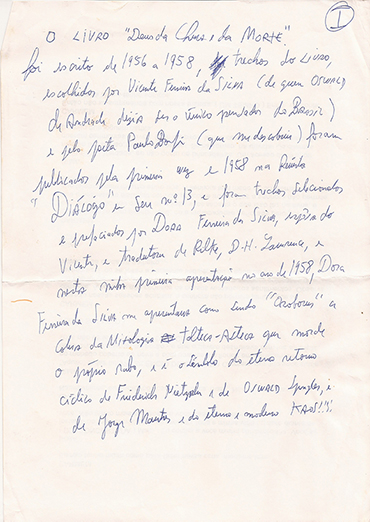 I
O LIVRO "Deus da Chuva e da MORTE"
foi escrito de 1956 a 1958, trechos do Livro,
escolhidos por Vicente Ferreira da Silva (de quem OSWALD
de Andrade dizia ser o único pensador do Brasil)
e pelo poeta Paulo Bonfim (que me descobriu) foram
publicados pela primeira vez em 1958 na Revista
"DIÁLOGO" em seu nº 13, e foram trechos selecionados
e prefaciados por Dora Ferreira da Silva, esposa do
Vicente, e tradutora de Rilke, D.H. Lawrence, e
nesta minha primeira apresentação no ano de 1958, Dora
Ferreira da Silva me apresentava como sendo "Ouroboros" a
cobra da Mitologia Tolteca-Asteca que morde
o próprio rabo, e é o símbolo do eterno retorno
cíclico de Friederich Nietzsche e de OSWALD Spengler, e
de Jorge Mautner e do eterno e moderno KAOS!!!